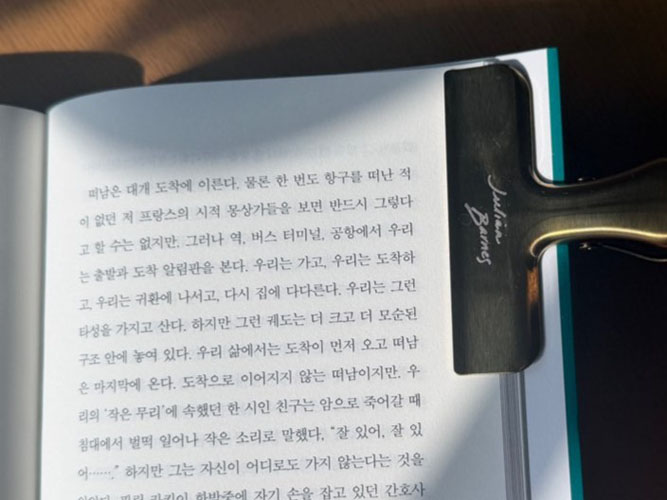 떠남은 대개 도착에 이른다. 물론 한 번도 항구를 떠난 적
이 없던 저 프랑스의 시적 몽상가들을 보면 반드시 그렇다
고 할 수는 없지만. 그러나 역, 버스 터미널, 공항에서 우리
는 출발과 도착 알림판을 본다. 우리는 가고, 우리는 도착하
고, 우리는 귀환에 나서고, 다시 집에 다다른다. 우리는 그런
타성을 가지고 산다. 하지만 그런 궤도는 더 크고 더 모순된
구조 안에 놓여 있다. 우리 삶에서는 도착이 먼저 오고 떠남
은 마지막에 온다. 도착으로 이어지지 않는 떠남이지만. 우
리의 ‘작은 무리’에 속했던 한 시인 친구는 암으로 죽어갈 때
침대에서 벌떡 일어나 작은 소리로 말했다. “잘 있어, 잘 있
어……” 하지만 그는 자신이 어디로도 가지 않는다는 것을
한밤중에 자기 손을 잡고 있던 간호사
Julian
Barnes